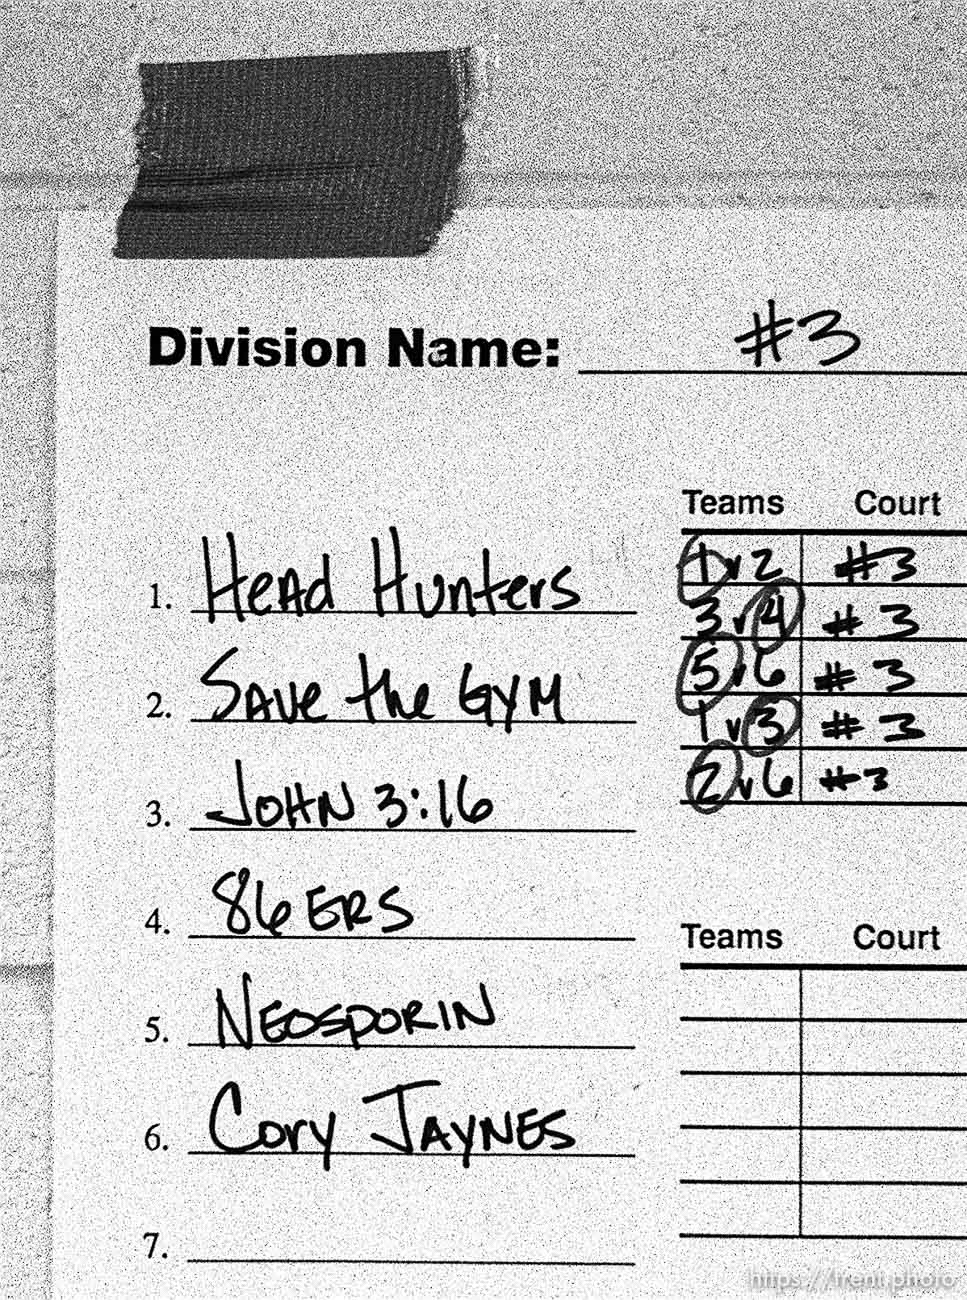 Division Name: #3
Teams Court
1 v 2 #3
3 v 4 # 3
5 v 6 # 3
1 v 3 # 3
2 v 6 #3
1. Head Hunters
2. Save the Gym
3. John 3:16
4. 86ers
5. Neosporin
6. Cory Jaynes
7.
Teams Court
https://trent.photo